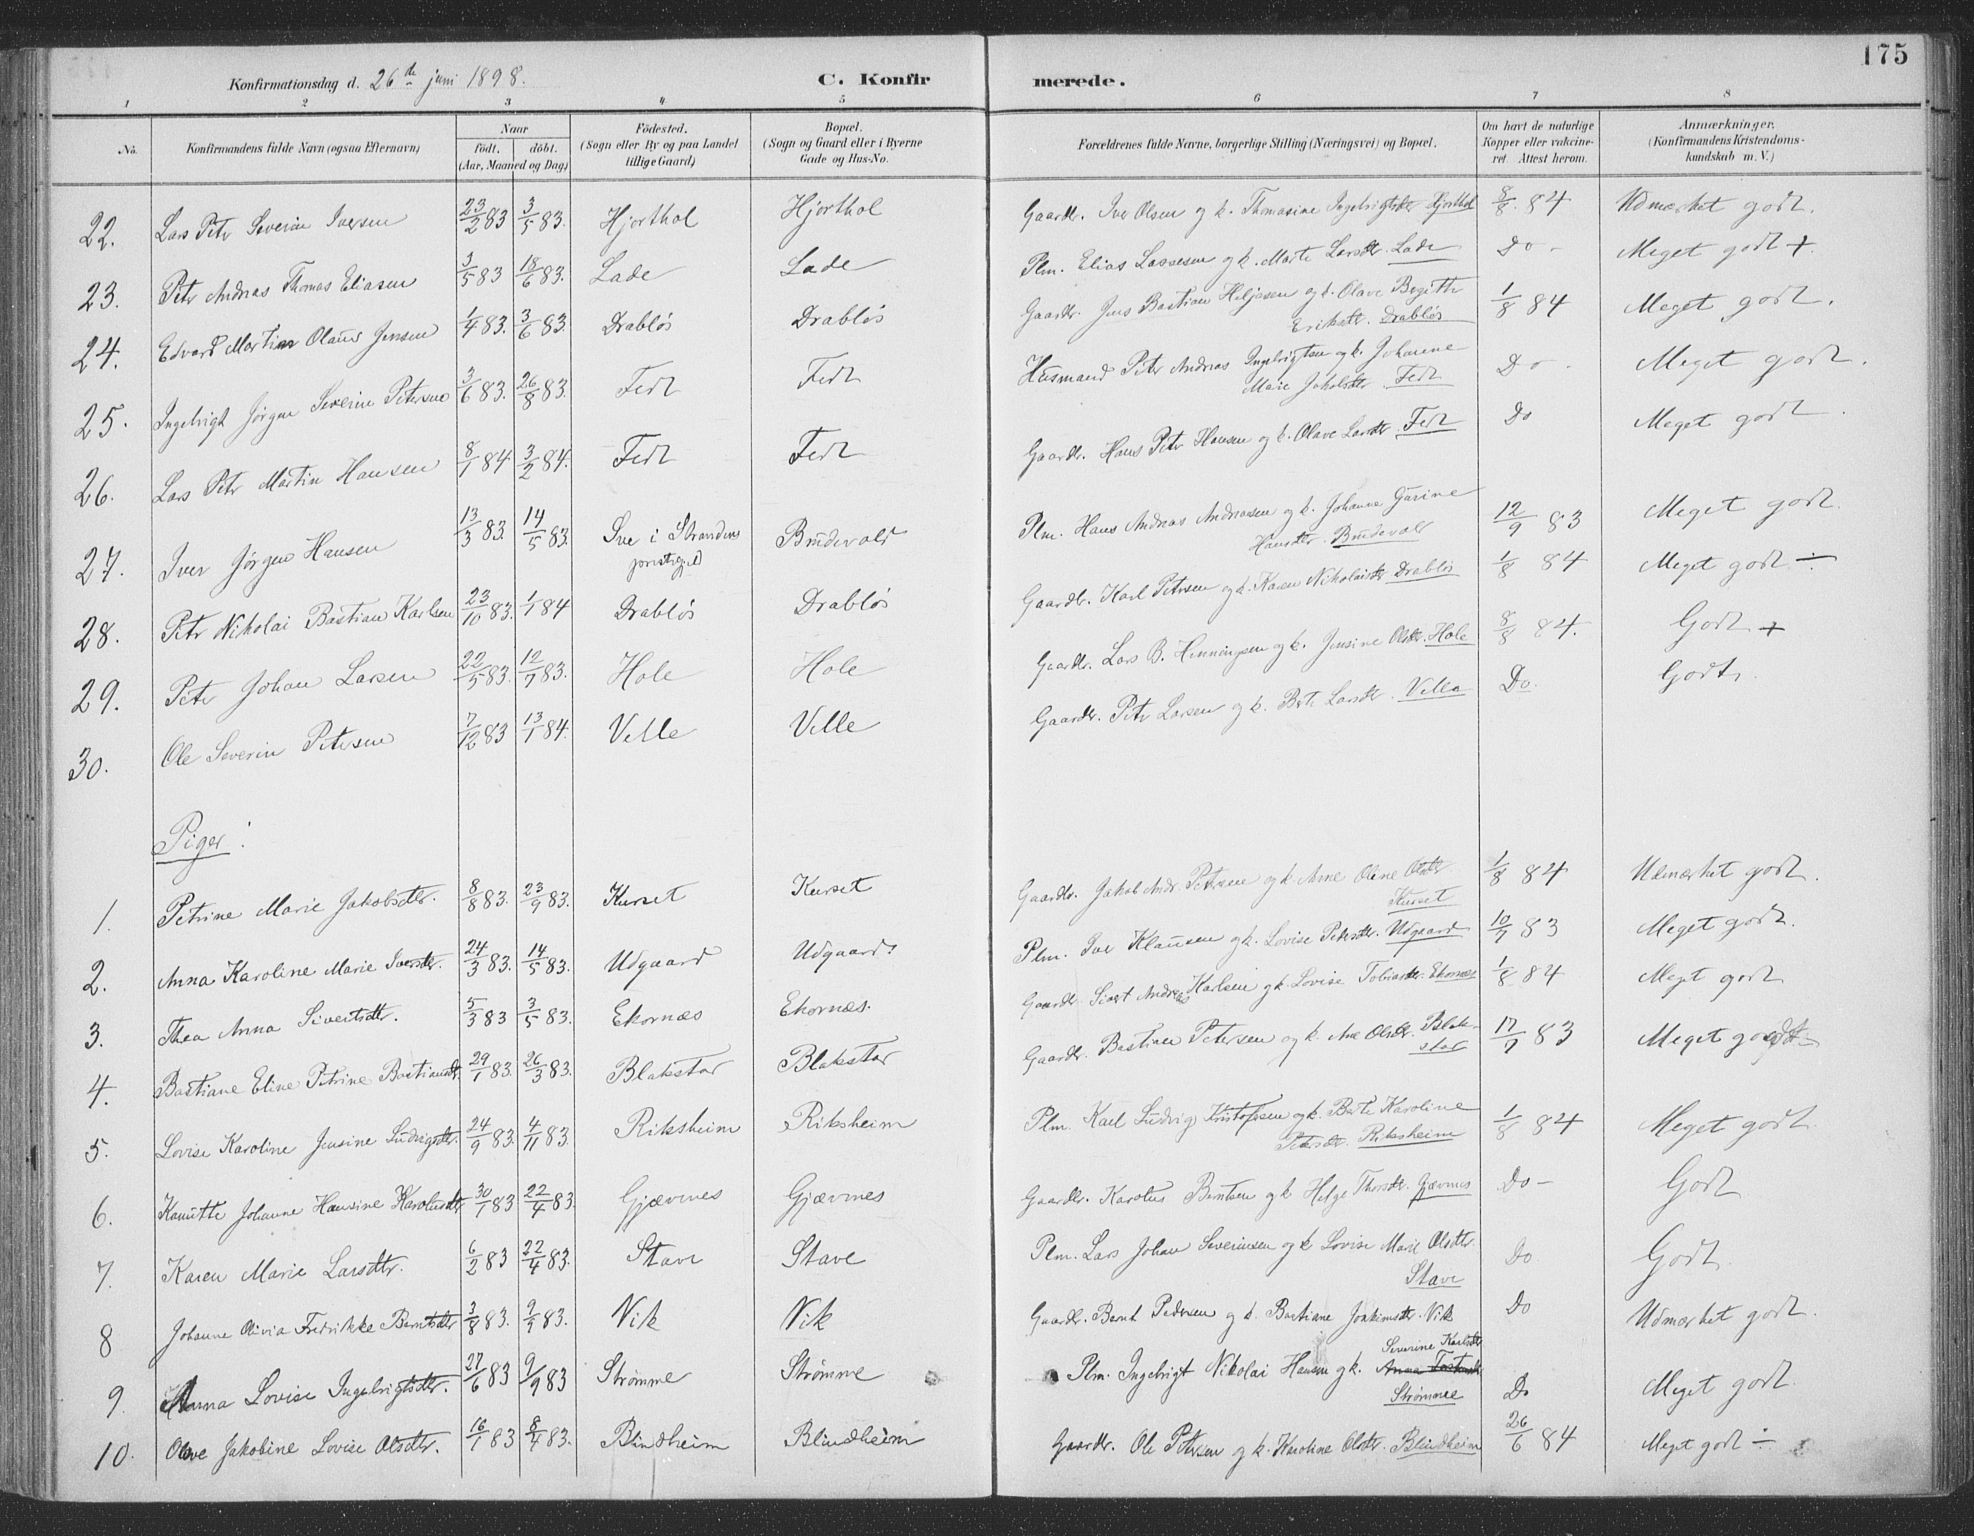 175
Konfirmationsdag d. 26de juni 1898. C. Konfirmerede.
1 2 3 4 5 6 7 8
No. Konfirmandens fulde Navn (ogsaa Efternavn) Naar födt. döbt. (Aar, Maaned og Dag) Födested. (Sogn eller By og paa Landet tillige Gaard) Bopæl. (Sogn og Gaard eller i Byerne Gade og Hus-No. Forældrenes fulde Navne, borgerlige Stilling (Næringsvei) og Bopæl. Om havt de naturlige Kopper eller vakcineret. Attest herom. Anmærkninger. (Konfirmandens Kristendomskundskab m. V.)
22. Lars Petr Severin Iversen 23/2 83 3/5 83. Hjorthol Hjorthol Gaardbr. Iver Olsen og k. Thomasine Ingebrigtsdtr Hjorthol 8/8. 84 Udmærket godt.
23. Petr Andreas Thomas Eliasen 3/5 83 18/6 83. Lade Lade Plm. Elias Lassesen og k. Marte Larsdtr. Lade Do - Meget godt +
24. Edvard Martin Olaus Jensen 1/4 83. 3/6 83. Drabløs Drabløs Gaardbr. Jens Bastian Heljesen og k. Olave Bergitte Eriksdtr. Drabløs 1/8 84 Meget godt.
25. Ingebrigt Jørgen Severin Petersen 3/6 83. 26/8 83. Fedt Fedt Husmand Petr Andreas Ingebrigtsen og k. Johanne Marie Jakobsdtr. Fedt Do - Meget godt.
26. Lars Petr Martin Hansen 8/1 84 3/2 84. Fedt Fedt Gaardbr. Hans Petr Hansen og k. Olave Larsdtr. Fedt Do Meget godt
27. Iver Jørgen Hansen 13/3 83. 14/5 83. Sve i Strandens præstegjeld Budevold Plm. Hans Andreas Andreasen og k. Johanne Gurine Hansdtr. Budevold 12/9 83 Meget godt
28. Petr Nikolai Bastian Karlsen 23/10 83. 1/1 84 Drabløs Drabløs Gaardbr. Karl Petersen og k. Karen Nikolaisdtr Drabløs 1/8 84 Meget godt ÷
29. Petr Johan Larsen 22/5 83. 12/7 83. Hole Hole Gaardbr. Lars B. Henningsen og k. Jensine Olsdtr. Hole 8/8 84. Godt +
30. Ole Severin Petersen 7/12 83 13/1 84. Velle Velle Gaardbr. Petr Larsen og k. Berte Larsdtr. Velle Do. Godt.
Piger:
1. Petrine Marie Jakobsdtr. 8/8 83. 23/9 83. Kurset Kurset Gaardbr. Jakob Andr. Petersen og k. Anne Oline Olsdtr Kurset 1/8 84 Udmærket godt.
2. Anna Karoline Marie Iversdtr. 24/3 83. 14/5 83. Udgaard Udgaard. Plm. Iver Klausen og k. Lovise Petersdtr. Udgaard 10/7 83 Meget godt.
3. Thea Anna Sivertsdtr. 5/3 83 3/5 83. Ekornæs Ekornæs. Gaardbr. Sivert Andreas Karlsen og k. Lovise Tobiasdtr. Ekornæs 1/8 84 Meget godt
4. Bastiane Eline Petrine Bastiansdt. 29/1 83. 26/3 83. Blakstad Blakstad Gaardbr. Bastian Petersen og k. Ane Olsdtr. Blakstad 17/7 83 Meget godt
5. Lovise Karoline Jensine Ludvigsdtr. 24/9 83. 4/11 83 Riksheim Riksheim Plm. Karl Ludvig Kristofsen og k. Berte Karoline Petersdtr. Riksheim 1/8 84 Meget godt.
6. Kanutte Johanne Hansine Karolusdtr 30/1 83 22/4 83. Gjævnes Gjævnes Gaardbr. Karolus Berntsen og k Helge Thorsdtr. Gjævnes Do - Godt
7. Karen Marie Larsdtr. 6/2 83 22/4 83. Stave Stave Plm. Lars Johan Severinsen og k Lovise Marie Olsdtr. Stave Do Godt.
8 Johanne Olivia Fredrikke Berntsdtr 3/8 83. 9/9 83. Vik Vik Gaardbr. Bernt Pedersen og k. Bastiane Joakimsdtr. Vik Do Udmærket godt.
9. Anna Lovise Ingebrigtsdtr. 27/6 83 9/9 83 Strømme Strømme Plm. Ingebrigt Nikolai Hansen og k. Severine Karlsdtr Strømme Do Meget godt.
10. Olave Jakobine Lovise Olsdtr. 16/1 83 8/4 83. Blindheim Blindheim Gaardbr. Ole Petersen og k. Karoline Olsdtr. Blindheim 26/6 84 Meget godt ÷